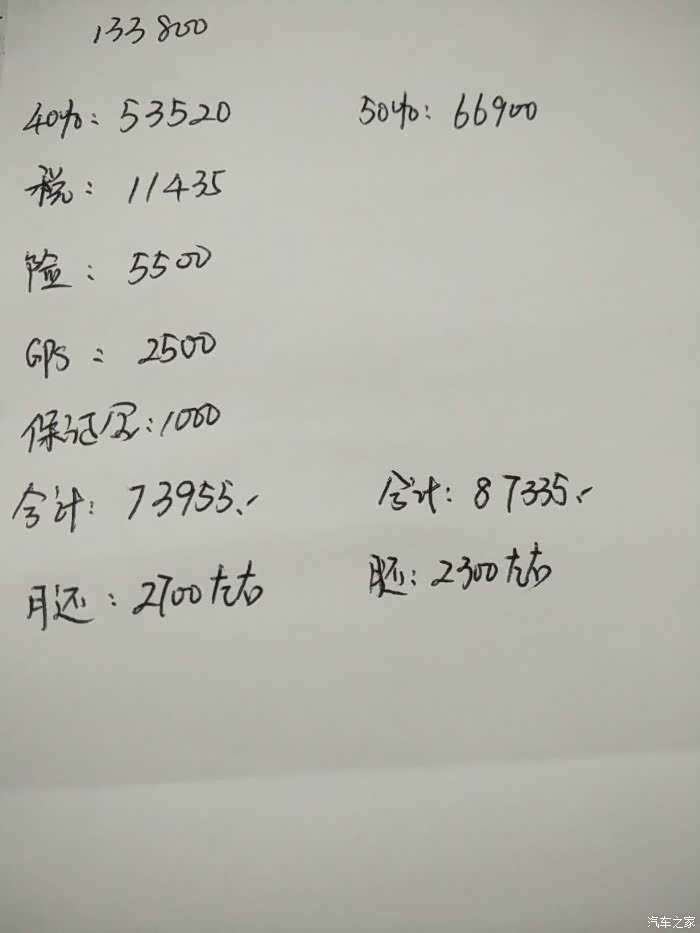 133800
40%: 53520
50%: 66900
税: 11435
险: 5500
GPS: 2500
保证金: 1000
合计: 73955.-
合计: 87335.-
月还: 2700左右
月还: 2300左右
汽车之家